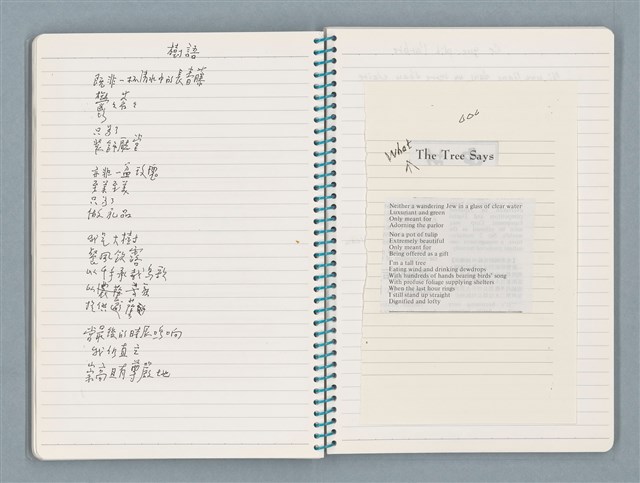 樹語
既非一杯清水中的長青藤
只為了
裝飾廳堂
亦非一盆玫瑰
至美至美
只為了
做禮品
我是大樹
餐風飲露
當最後的時辰鳴响
我仍直立
崇高且有尊嚴地
What
The Tree Says
Neither a wandering Jew in a glass of clear water
Luxuriant and green
Only meant for
Adorning the parlor
Nor a pot of tulip
Extremely beautiful
Only meant for
Bring offered as a gift
I'm a tall tree
Eating wind and drinking dewdrops
With hundreds of hands hearing birds' song
With profuse foliage supplying shelters
When the last hour rings
I still stand up straight
Dignified and lofty